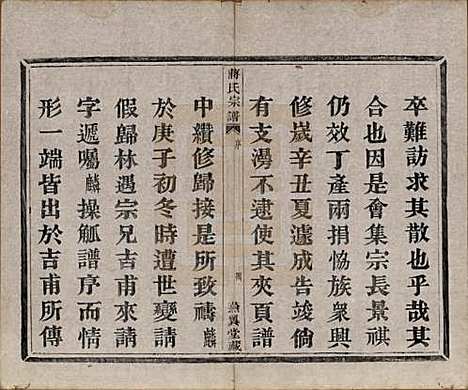 卒難訪求其散也乎哉其
合也因是會集宗長景祺
仍效丁產兩捐恊族衆興
修歲辛丑夏遽成告竣倘
有支湯不逮使其夾頁譜
蔣氏宗譜
序
燕翼堂藏
中纘修歸接是所致禱麟
於庚子初冬時遭世變請
假歸林遇宗兄吉甫來請
字遞囑麟操觚譜序而情
形一端皆出於吉甫所傳